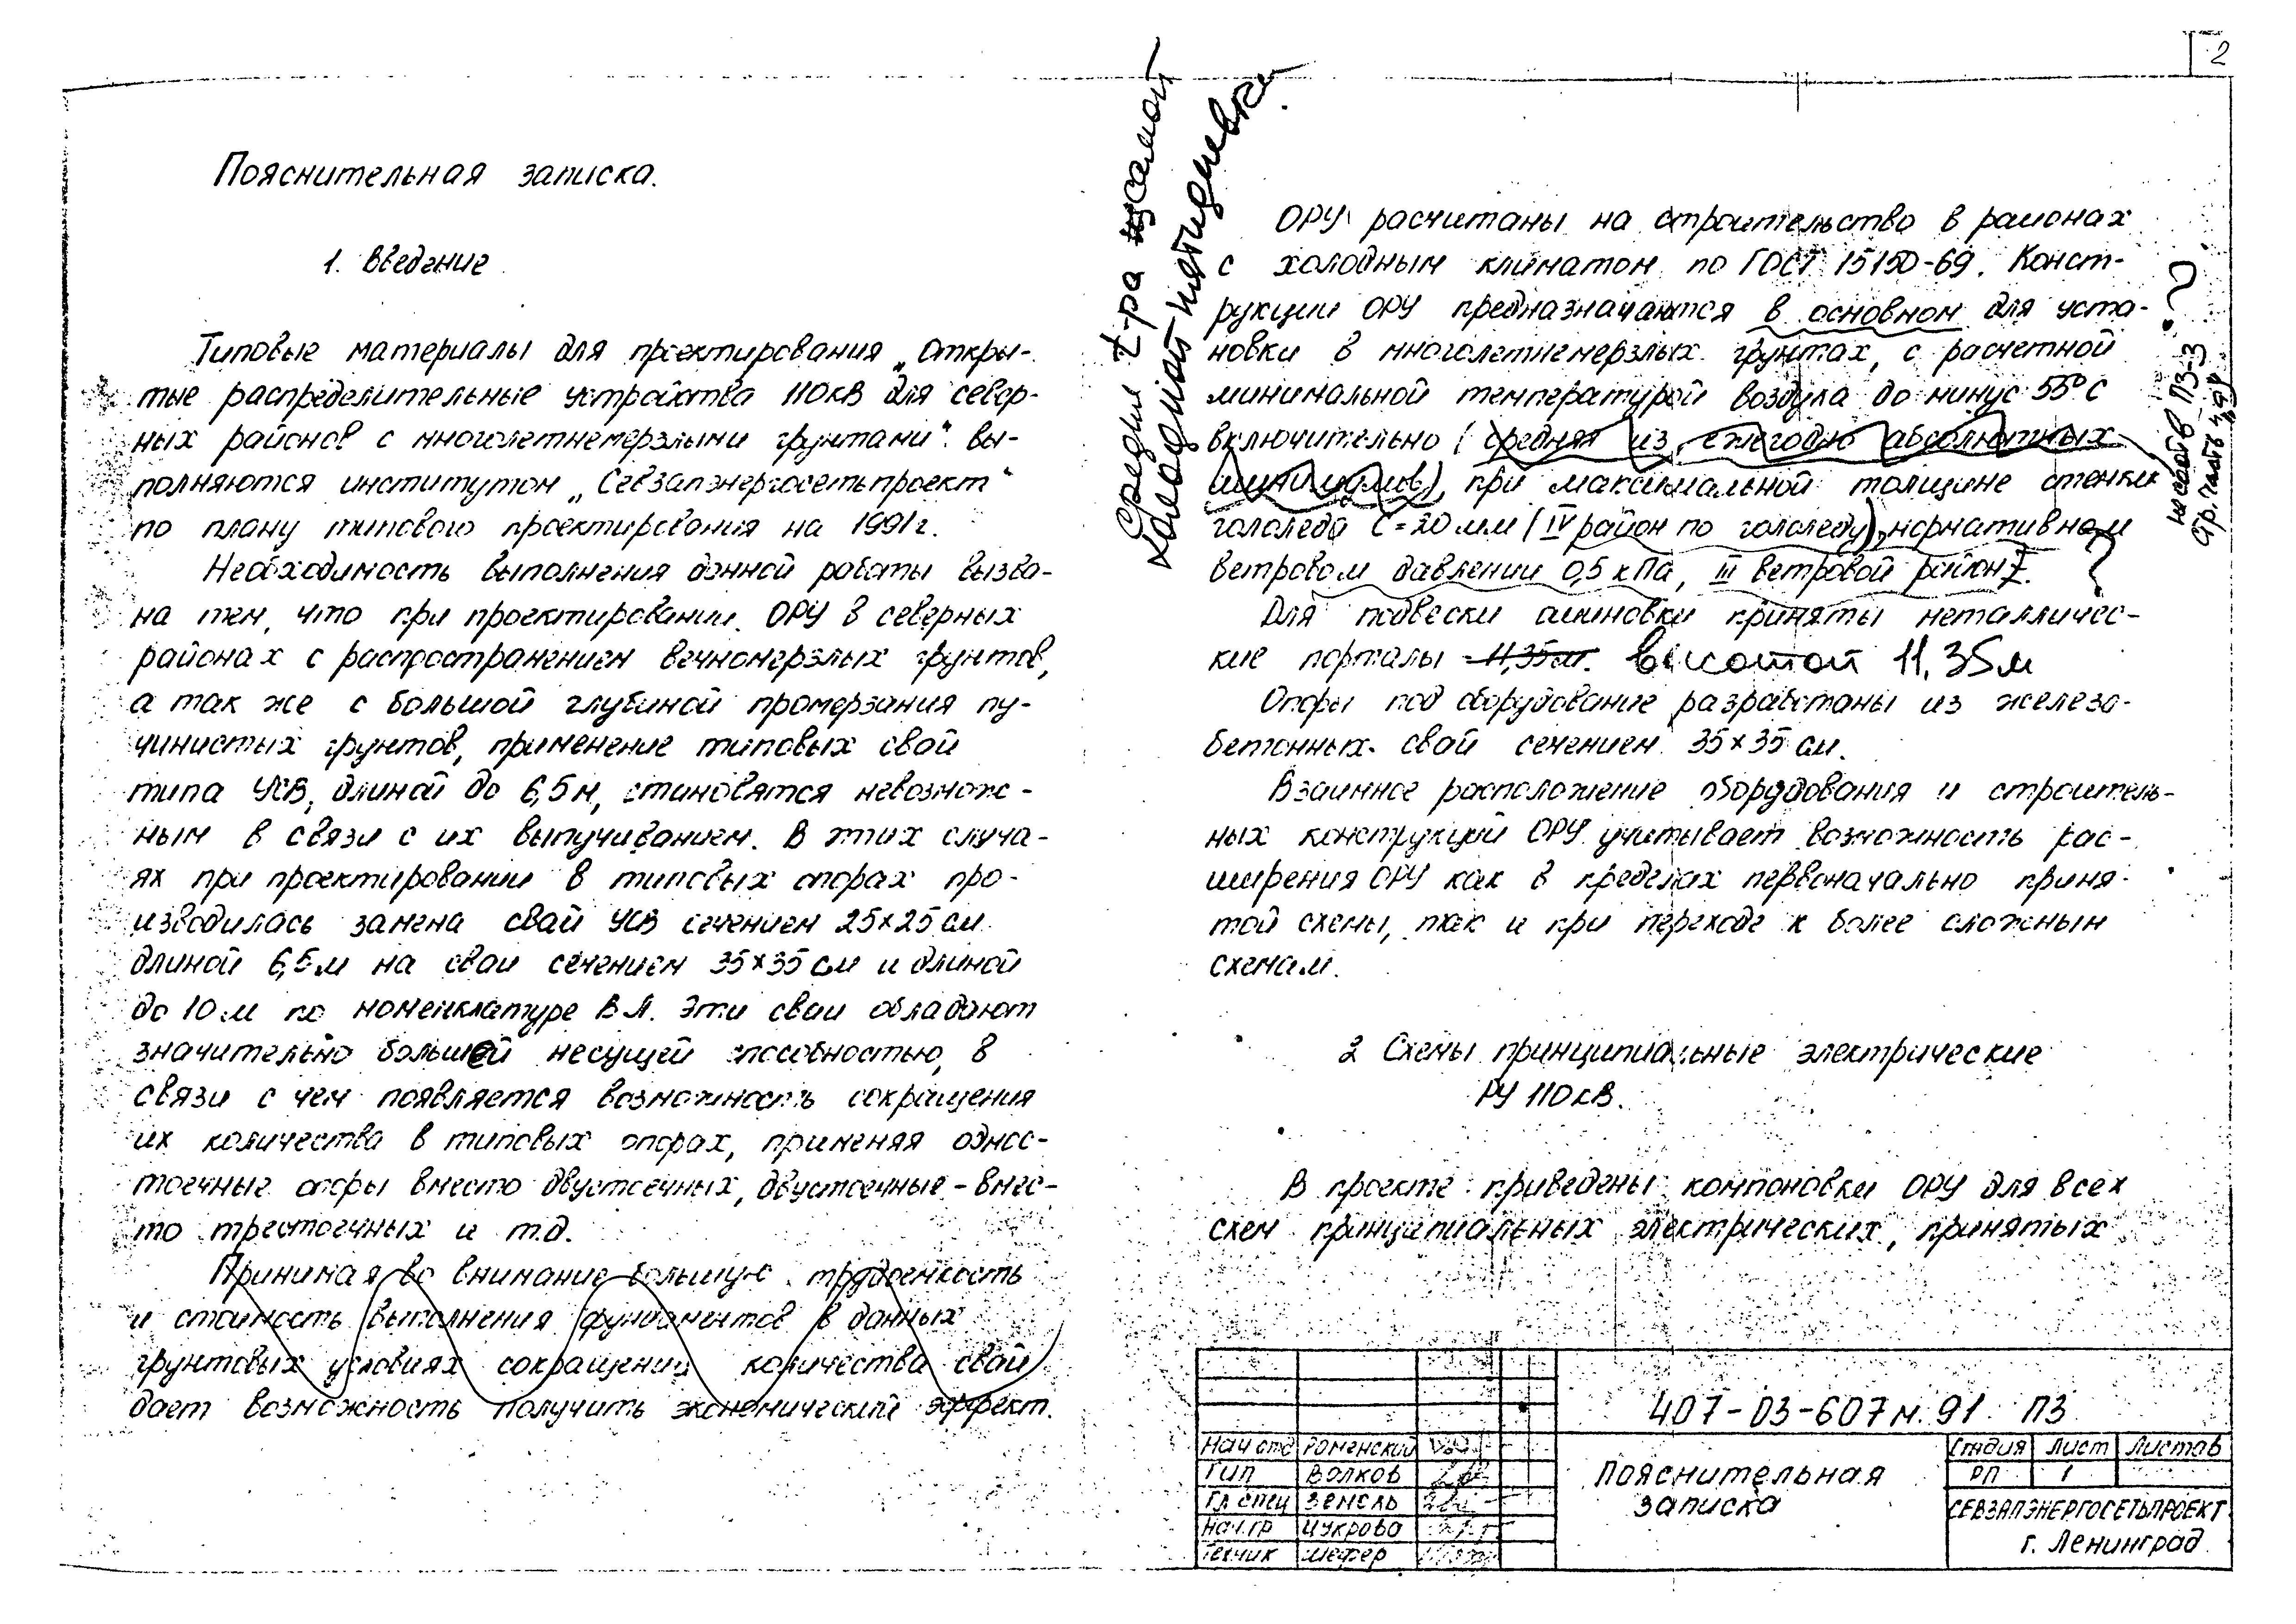 2
Пояснительная записка.
1. Введение
Типовые материалы для проектирования „Откры-
тые распределительные устройства 110кВ для север-
ных районов с многолетнемерзлыми грунтами“ вы-
полняются институтом „Севзапэнергосетьпроект“
по плану типового проектирования на 1991г.
Необходимость выполнения данной работы вызва-
на тем, что при проектировании ОРУ в северных
районах с распространением вечномерзлых грунтов,
а так же с большой глубиной промерзания пу-
чинистых грунтов, применение типовых свай
типа УСВ, длиной до 6,5м, становятся невозмож-
ным в связи с их выпучиванием. В этих случа-
ях при проектировании в типовых опорах про-
изводилась замена свай УСВ сечением 25×25 см
длиной 6,5м на сваи сечением 35×35 см и длиной
до 10м по номенклатуре ВЛ. Эти сваи обладают
значительно большей несущей способностью, в
связи с чем появляется возможность сокращения
их количества в типовых опорах, применяя однос-
тоечные опоры вместо двустоечных, двустоечные - вмес-
то трестоечных и т.д.
Принимая во внимание большую трудоемкость
и стоимость выполнения фундаментов в данных
грунтовых условиях сокращении количества свай
дает возможность получить экономический эффект.
Средняя t-ра самой
холодной пятидневки
ОРУ расчитаны на строительство в районах
с холодным климатом по ГОСТ 15150-69. Конст-
рукции ОРУ предназначаются в основном для уста-
новки в многолетнемерзлых грунтах, с расчетной
минимальной температурой воздуха до минус 55°С
включительно (средняя из ежегодно абсолютных
минимумов), при максимальной толщине стенки
гололеда С=20мм (IV район по гололеду), нормативном
ветровом давлении 0,5 кПа, III ветровой район.
?
Для подвески ошиновки приняты металличес-
кие порталы 11,35м. высотой 11,35м
Опоры под оборудование разработаны из железо-
бетонных свай сечением 35×35 см.
Взаимное расположение оборудования и строитель-
ных конструкций ОРУ учитывает возможность рас-
ширения ОРУ как в пределах первоначально приня-
той схемы, так и при переходе к более сложным
схемам.
?
ПЗ-3
2 Схемы принципиальные электрические
РУ 110кВ.
В проекте приведены компоновки ОРУ для всех
схем принципиальных электрических, принятых
407-03-607м.91 ПЗ
Нач отд Роменский
Гип Волков
Гл спец Земель
Нач.гр Цукрова
Техник Шефер
Пояснительная
записка
Стадия Лист Листов
РП 1
СЕВЗАПЭНЕРГОСЕТЬПРОЕКТ
г. Ленинград